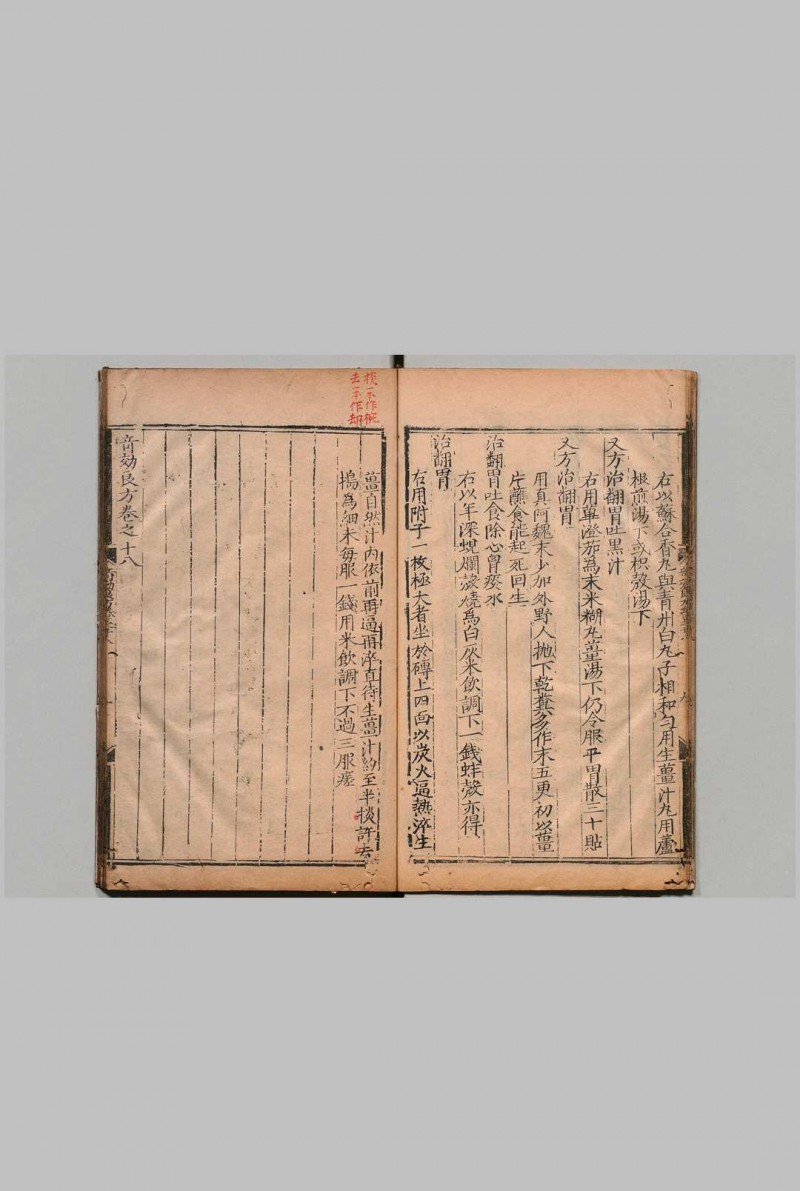 右以蘇合香丸與青州白丸子相和勻用生薑汁丸用蘆
根煎湯下或枳殼湯下
又方治翻胃吐黑汁
右用蓽澄茄為末米糊丸薑湯下仍令服平胃散三十貼
又方治翻胃
用真阿魏末少加外野人拋下乾糞多作末五更初以薑
片蘸食能起死回生
治翻胃吐食除心胷痰水
右以年深蜆爛殼燒為白灰米飲調下一錢蚌殼亦得
治翻胃
右用附子一枚極大者坐於磚上四面以炭火逼熱淬生
薑自然汁內依前再逼再淬直待生薑汁約至半掞許去
搗為細末每服一錢用米飲調下不過三服瘥
掞一本作椀
去一本作却
奇効良方卷之十八